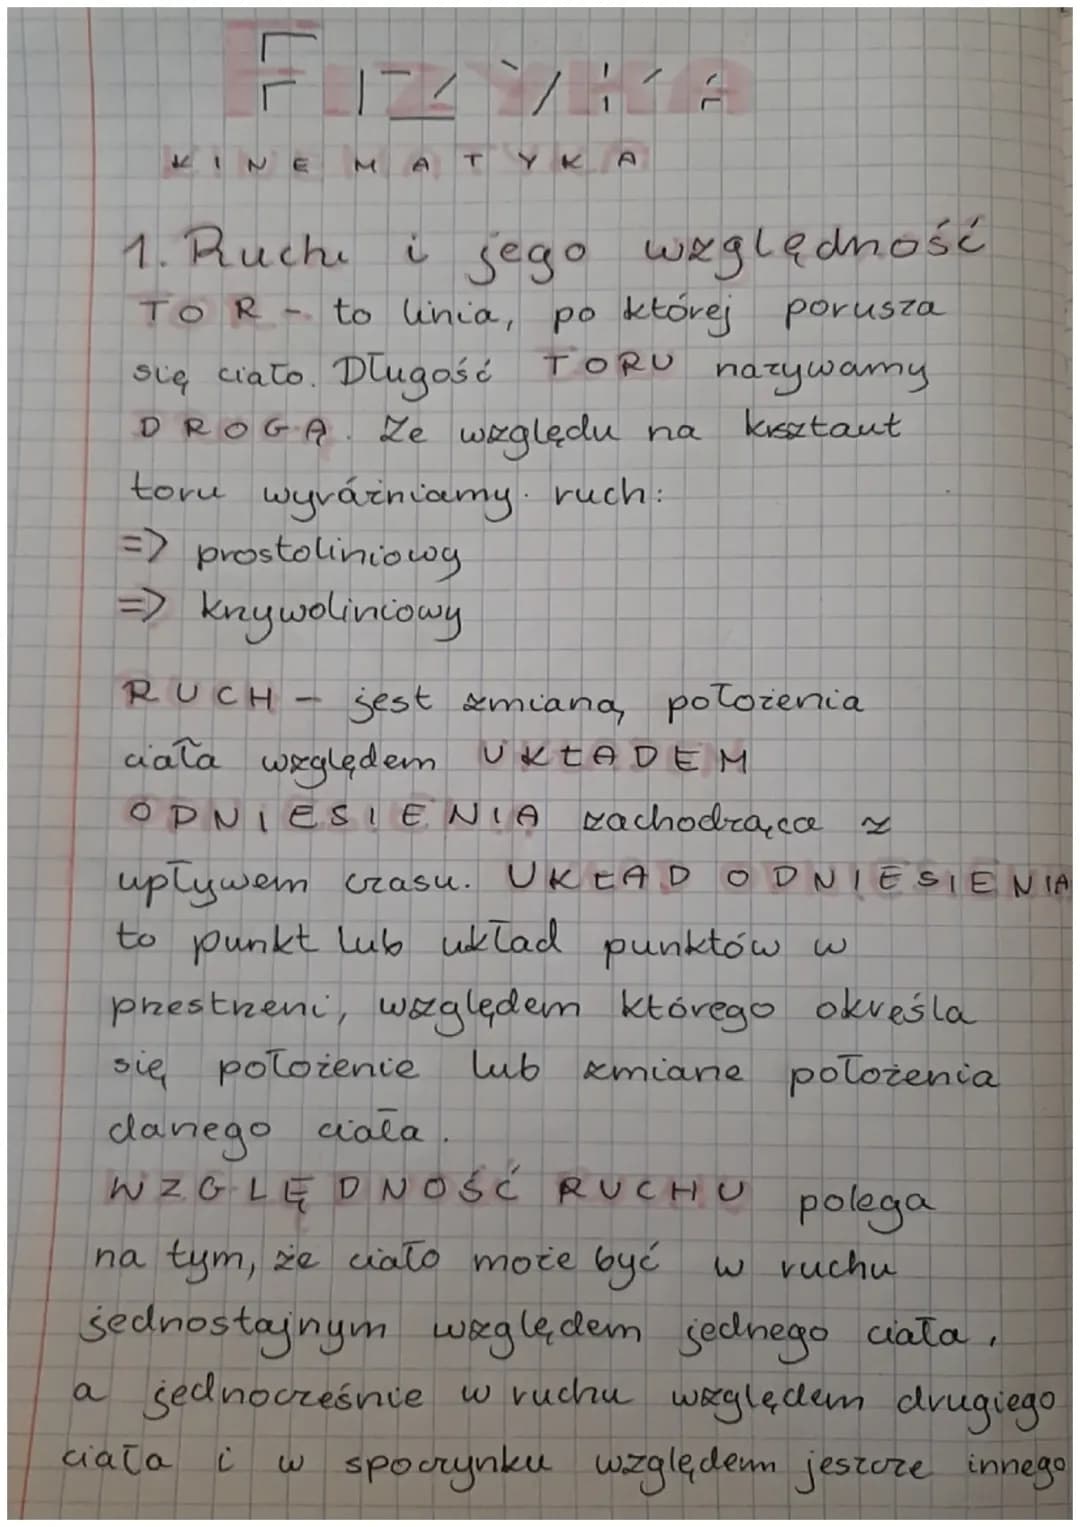 FIZYKA
KINEMATYKA
1. Ruch i jego względność
TOR - to linia, po której porusza
się ciało. Długość TORU nazywamy
DROGĄ. Ze względu na ksztaut
toru wyróżniamy ruch:
=> prostoliniowy
=> krzywoliniowy
RUCH - jest zmianą położenia
ciała względem UKŁADEM
ODNIESIENIA zachodząca z
upływem czasu. UKŁAD ODNIESIENIA
to punkt lub układ punktów w
przestrzeni, względem którego określa
się położenie lub zmiane położenia
danego ciała.
WZGLĘDNOŚĆ RUCHU polega
na tym, że ciało może być w ruchu
jednostajnym względem jednego ciała,
a jednocześnie w ruchu względem drugiego
ciała i w spoczynku względem jeszcze innego